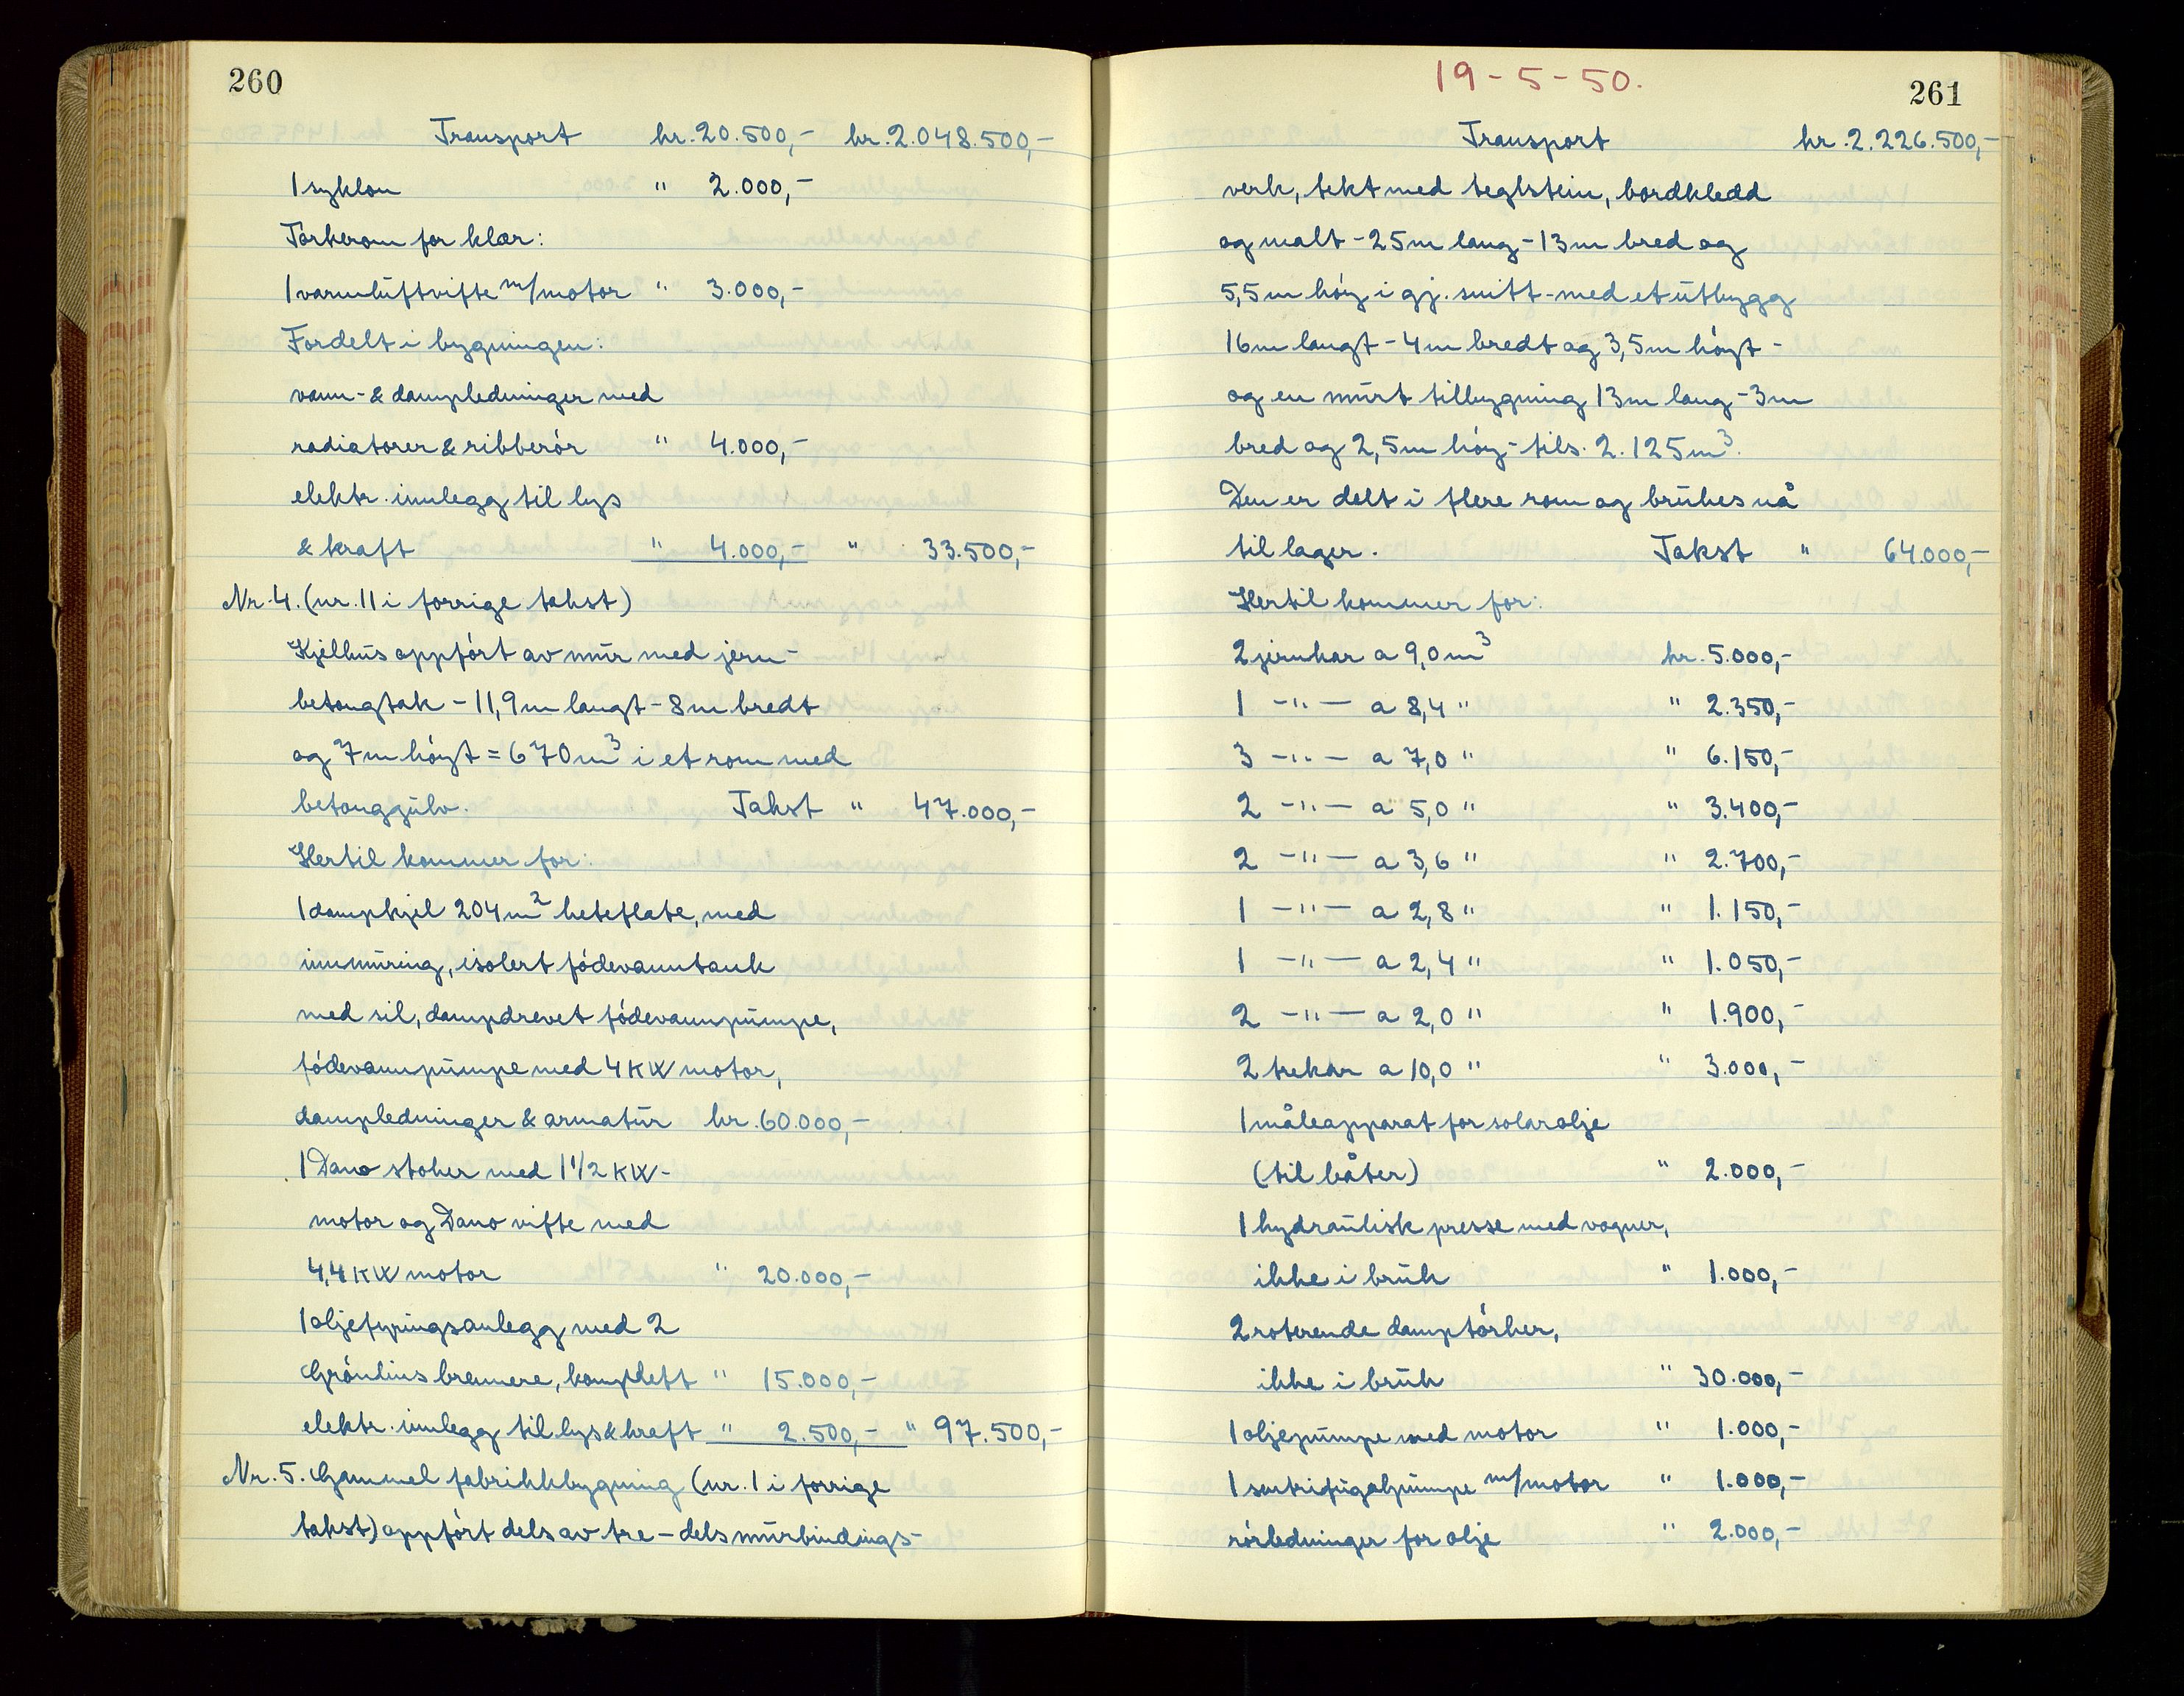 260
Transport kr. 20.500,- kr. 2.048.500,-
1 syklon " 2.000,-
Tørkerom for klær:
1 varmluftvifte m/motor " 3.000,-
Fordelt i bygningen:
vann- & dampledninger med
radiatorer & ribberör " 4.000,-
elektr. innlegg til lys
& kraft " 4.000,- " 33.500,-
Nr. 4. (nr. 11 i forrige takst)
Kjelhus oppfört av mur med jern-
betongtak - 11,9 m langt - 8 m bredt
og 7 m höyt = 670 m³ i et rom med
betonggulv. Takst " 47.000,-
Hertil kommer for:
1 dampkjel 204 m² heteflate, med
innmuring, isolert födevanntank
med sil, dampdrevet födevannpumpe,
födevannpumpe med 4 KW motor,
dampledninger & armatur kr. 60.000,-
1 Dano stoker med 1 1/2 KW-
motor og Dano vifte med
4,4 KW motor " 20.000,-
1 oljefyringsanlegg med 2
Gröndius brennere, komplett " 15.000,-
elektr. innlegg til lys & kraft " 2.500,- " 97.500,-
Nr. 5. Gammel fabrikkbygning (nr. 1 i forrige
takst) oppfört dels av tre - dels murbindings-
19-5-50.
261
Transport kr. 2.226.500,-
verk, tekt med teglstein, bordkledd
og malt - 25 m lang - 13 m bred og
5,5 m höy i gj. snitt - med et utbygg
16 m langt - 4 m bredt og 3,5 m höyt -
og en murt tilbygning 13 m lang - 3 m
bred og 2,5 m höy - tils. 2.125 m³.
Den er delt i flere rom og brukes nå
til lager. Takst " 64.000,-
Hertil kommer for:
2 jernkar a 9,0 m³ kr. 5.000,-
1 -"- a 8,4 " " 2.350,-
3 -"- a 7,0 " " 6.150,-
2 -"- a 5,0 " " 3.400,-
2 -"- a 3,6 " " 2.700,-
1 -"- a 2,8 " " 1.150,-
1 -"- a 2,4 " " 1.050,-
2 -"- a 2,0 " " 1.900,-
2 trekar a 10,0 " " 3.000,-
1 måleapparat for solarolje
(til båter) " 2.000,-
1 hydraulisk presse med vogner,
ikke i bruk " 1.000,-
2 roterende damptörker,
ikke i bruk " 30.000,-
1 oljepumpe med motor " 1.000,-
1 sentrifugalpumpe m/motor " 1.000,-
rörledninger for olje " 2.000,-